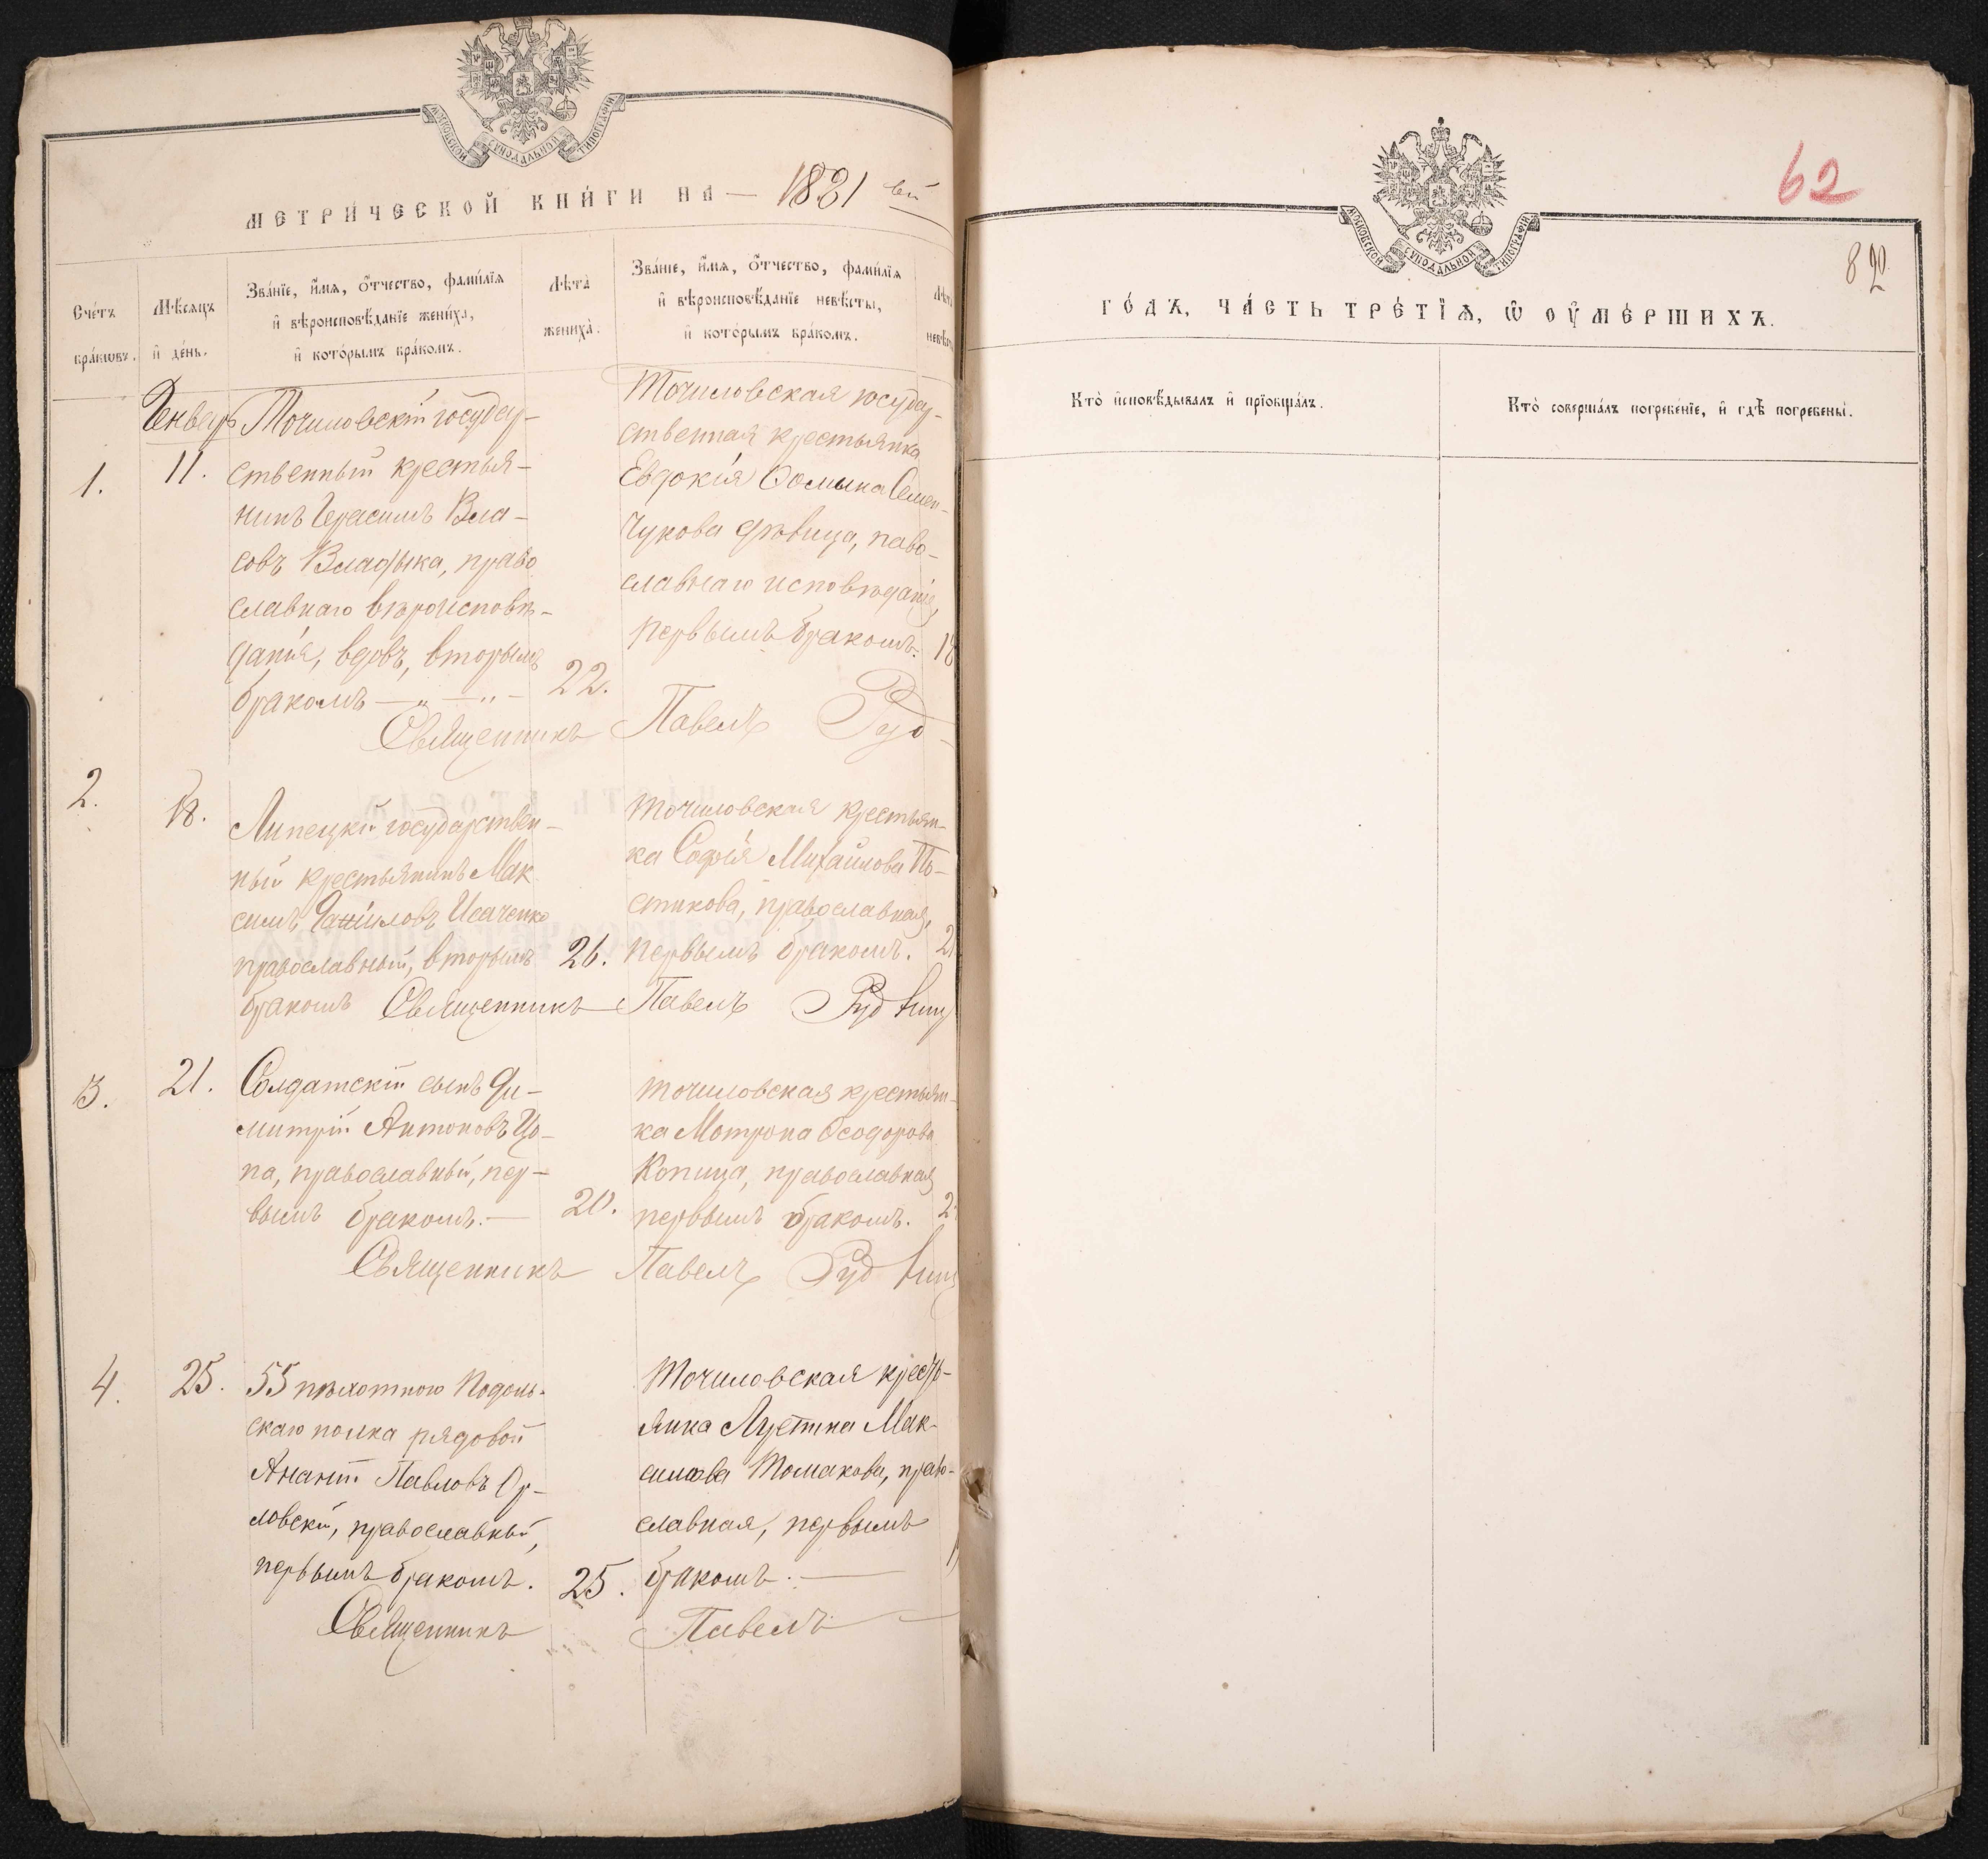 МОСКОВСКОЙ СУНОДАЛЬНОЙ ТИПОГРАФІИ
МЕТРИ́ЧЕСКОЙ КНИ́ГИ НА — 1881 вый
Сче́тъ бра́кѡвъ.
Мѣ́сяцъ и҆ де́нь.
Зва́нїе, и҆́мѧ, ѻ҆́тчество, фами́лїѧ
и҆ вѣроисповѣ́данїе жениха̀,
и҆ кото́рымъ бра́комъ.
Лѣ́та жениха̀.
Зва́нїе, и҆́мѧ, ѻ҆́тчество, фами́лїѧ
и҆ вѣроисповѣ́данїе невѣ́сты,
и҆ кото́рымъ бра́комъ.
Генварь
1.
11.
Точиловскій государ-
ственный крестья-
нинъ Герасимъ Вла-
совъ Владыка, право
славнаго вѣроисповѣ-
данія, вдовъ, вторымъ
бракомъ — „ — „ —
22.
Точиловская государ-
ственная крестьянка
Евдокія Ѳомина Семен-
чукова дѣвица, паво-
славнаго исповѣданія,
первымъ бракомъ.
18
Священникъ Павелъ Руд
2.
18.
Липецкій государствен-
ный крестьянинъ Мак
симъ Даніиловъ Исаченко
православный, вторымъ
бракомъ
26.
Точиловская крестьян-
ка Софія Михайлова По-
стикова, православная,
первымъ бракомъ.
Священникъ Павелъ Рудниц
3.
21.
Солдатскій сынъ Ди-
митрій Антоновъ Цо-
па, православный, пер-
вымъ бракомъ. —
20.
Точиловская крестьян-
ка Мотрона Ѳеодорова
Копица, православная
первымъ бракомъ.
Священникъ Павелъ Рудниц
4.
25.
55 пѣхотного Подоль-
скаго полка рядовой
Ананій Павловъ Ор-
ловскій, православный,
первымъ бракомъ.
25.
Точиловская кресть-
янка Лустина Мак-
симова Толмакова, право-
славная, первымъ
бракомъ. —
Священникъ Павелъ
МОСКОВСКОЙ СУНОДАЛЬНОЙ ТИПОГРАФІИ
62
82
ГО́ДЪ, ЧА́СТЬ ТРЕ́ТЇѦ, Ѡ҆ ОУ҆МЕ́РШИХЪ.
Кто̀ и҆сповѣ́дывалъ и҆ прїобща́лъ.
Кто̀ соверша́лъ погребе́нїе, и҆ гдѣ̀ погребены̀.